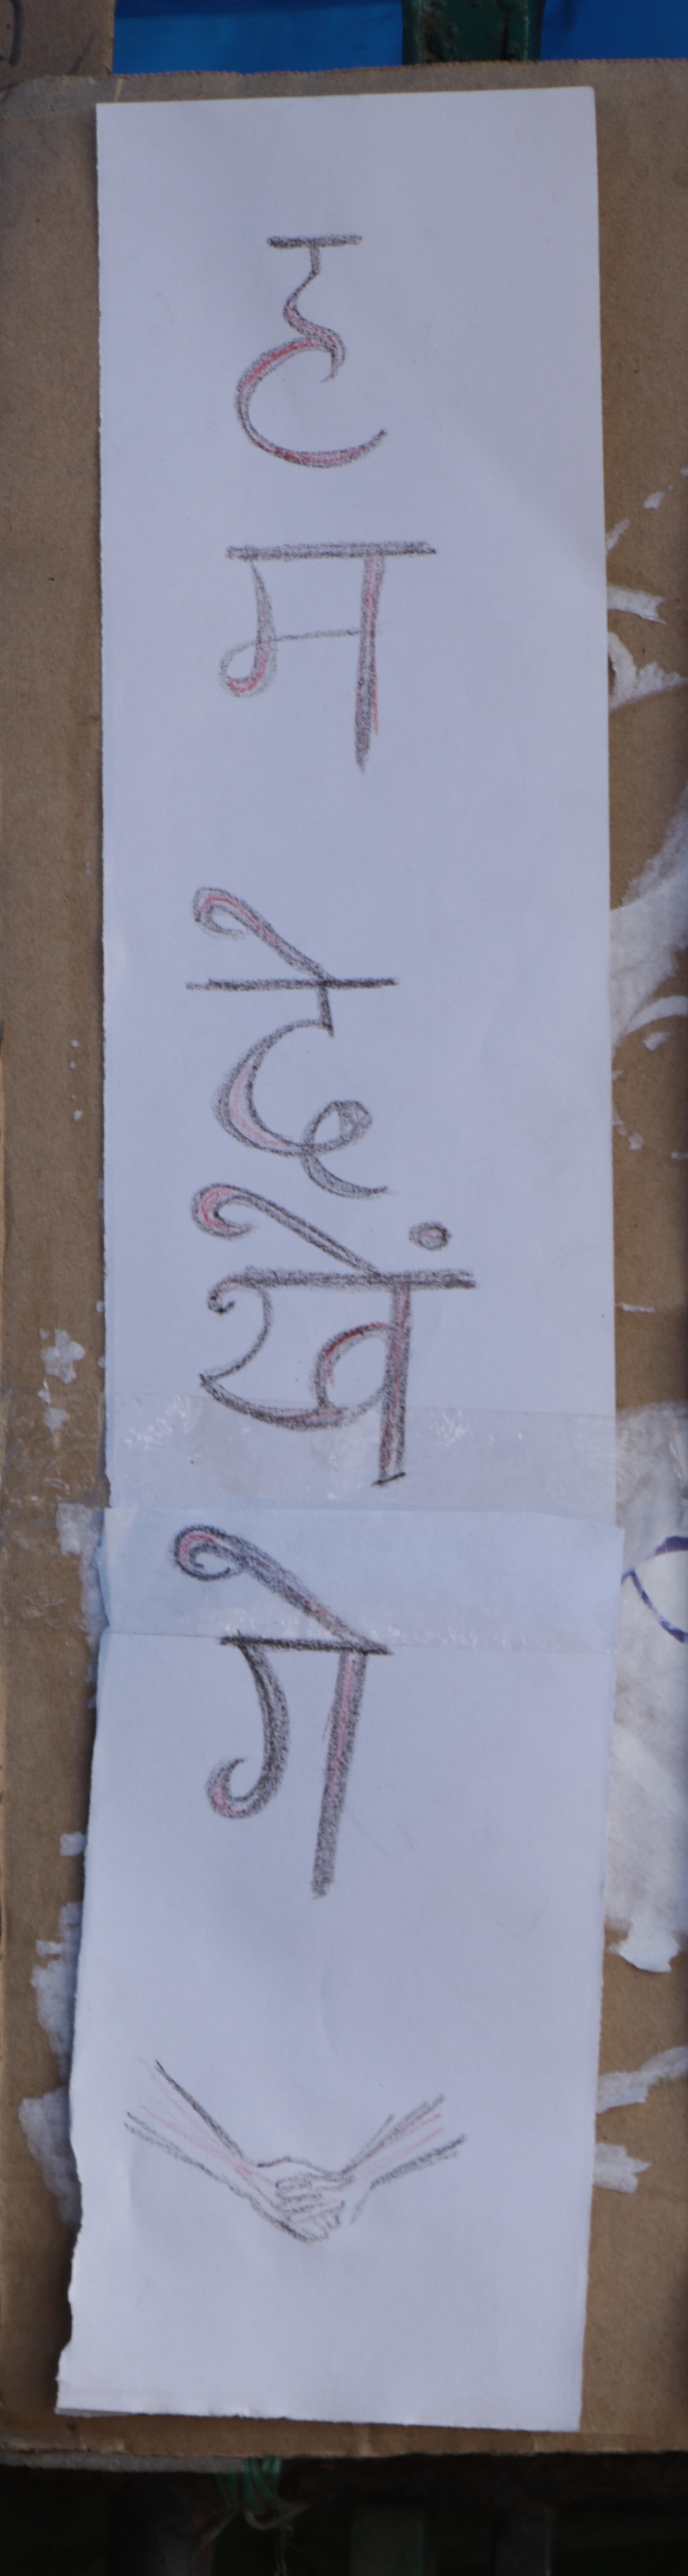 ह
म
दे
खें
गे